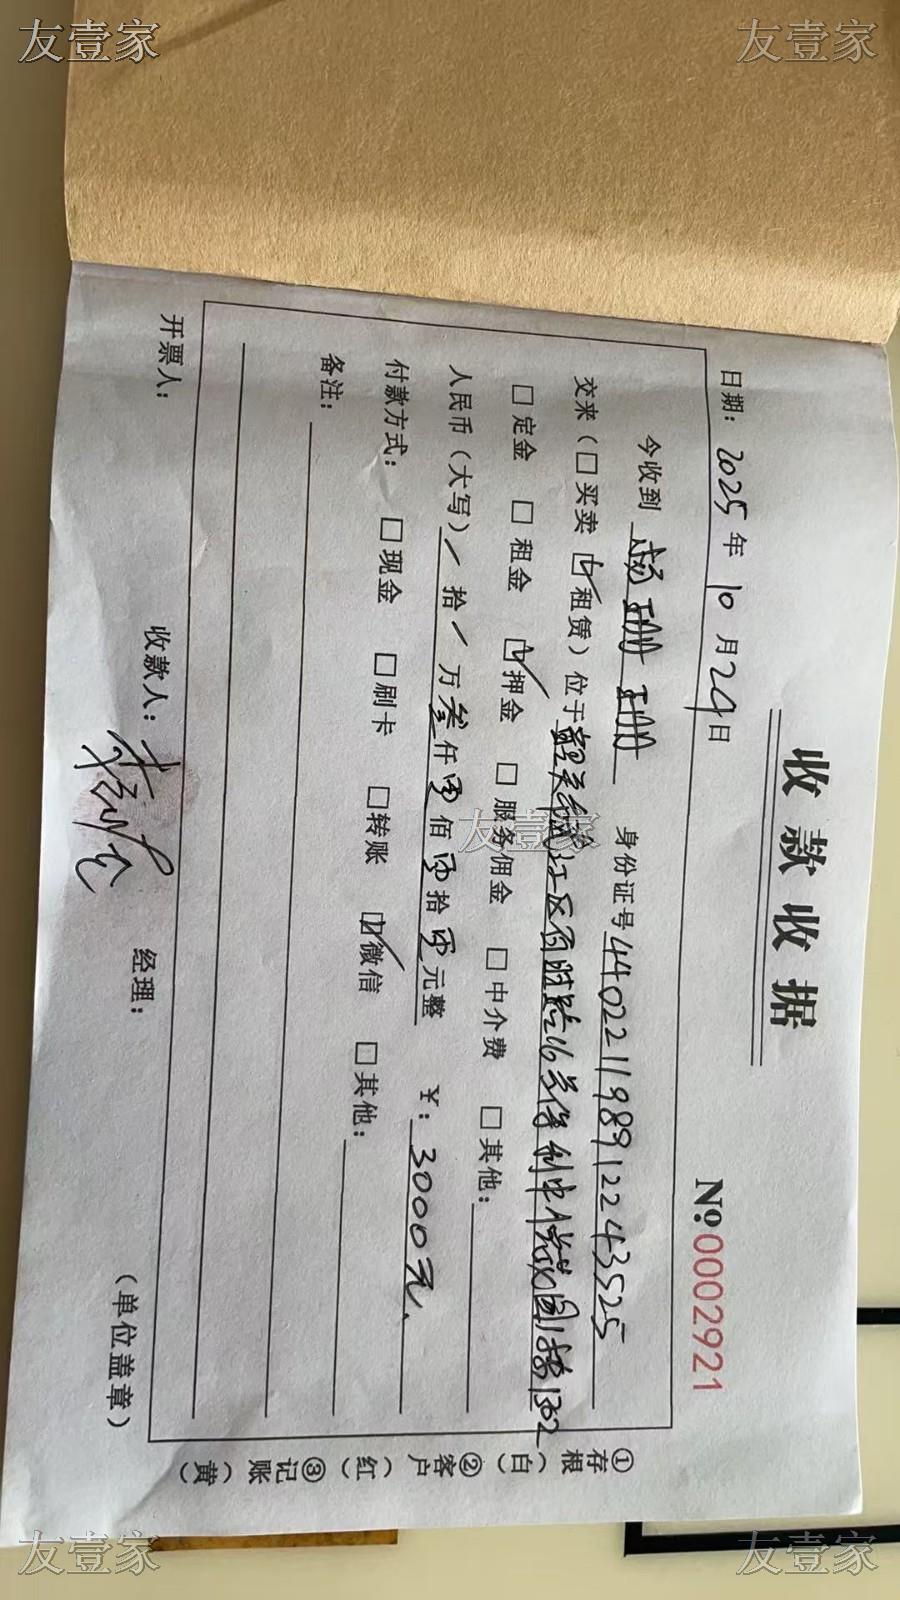 友壹家
友壹家
收款收据
№:0002921
日期: 2025年10月29日
今收到 杨珊珊 身份证号440221198912243525
交来(□买卖 ☑租赁)位于韶关市浈江区百旺路16号保利中 园1楼1302
□定金 □租金 ☑押金 □服务佣金 □中介费 □其他:
人民币(大写) / 拾 / 万叁仟零佰零拾零元整 ¥: 3000元
付款方式: □现金 □刷卡 □转账 ☑微信 □其他:
备注:
开票人: 收款人: 经理: (单位盖章)
①存根(白) ②客户(红) ③记账(黄)
友壹家
友壹家
友壹家